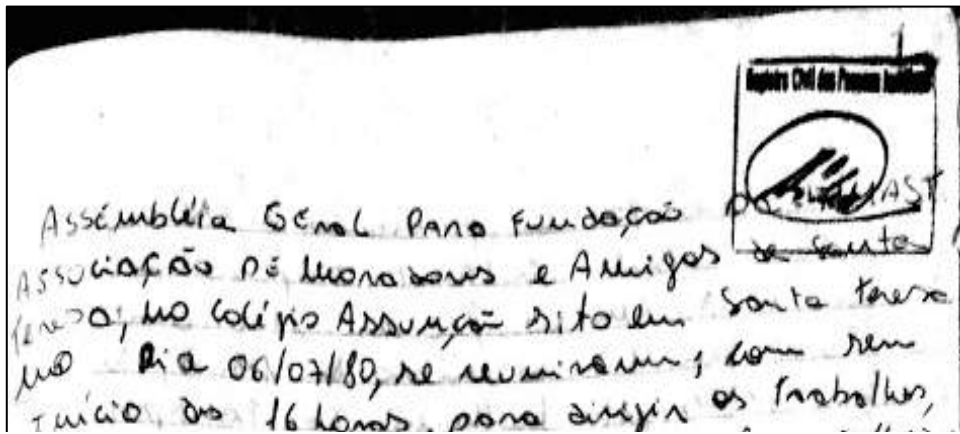 1
Registro Civil das Pessoas Jurídicas
Assembléia Geral Para Fundação da AMAST
Associação de Moradores e Amigos de Santa
Teresa, no colégio Assunção sito em Santa Teresa
no Dia 06/07/80, se reuniram, com seu
Início às 16 horas, para dirigir os Trabalhos,